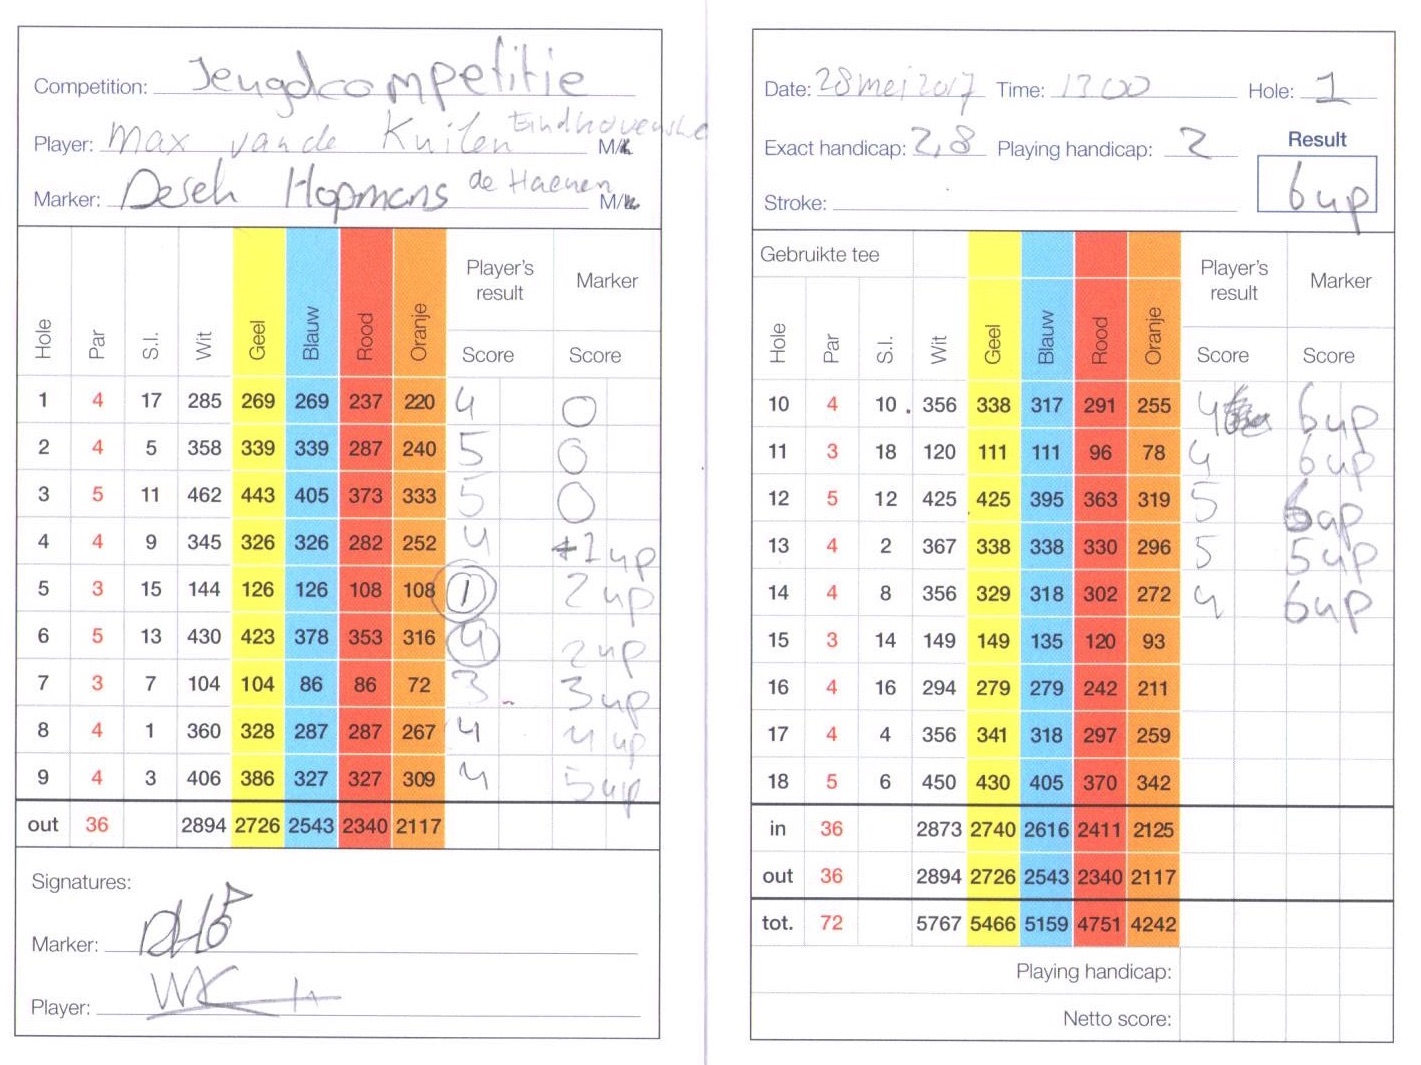 Competition: Jeugdcompetitie
Player: Max van de Kuilen Eindhovensche M/
Marker: Deseh Hopmans de Haenen M/
Hole Par S.I. Wit Geel Blauw Rood Oranje Player's result Score Marker Score
1 4 17 285 269 269 237 220 4 0
2 4 5 358 339 339 287 240 5 0
3 5 11 462 443 405 373 333 5 0
4 4 9 345 326 326 282 252 4 1up
5 3 15 144 126 126 108 108 1 2up
6 5 13 430 423 378 353 316 4 2up
7 3 7 104 104 86 86 72 3 3up
8 4 1 360 328 287 287 267 4 4up
9 4 3 406 386 327 327 309 4 5up
out 36 2894 2726 2543 2340 2117
Signatures:
Marker:
Player:
Date: 28 mei 2017 Time: 1300 Hole: 1
Exact handicap: 2,8 Playing handicap: 2 Result
Stroke: 6up
Gebruikte tee
Hole Par S.I. Wit Geel Blauw Rood Oranje Player's result Score Marker Score
10 4 10 356 338 317 291 255 4 6up
11 3 18 120 111 111 96 78 4 6up
12 5 12 425 425 395 363 319 5 6up
13 4 2 367 338 338 330 296 5 5up
14 4 8 356 329 318 302 272 4 6up
15 3 14 149 149 135 120 93
16 4 16 294 279 279 242 211
17 4 4 356 341 318 297 259
18 5 6 450 430 405 370 342
in 36 2873 2740 2616 2411 2125
out 36 2894 2726 2543 2340 2117
tot. 72 5767 5466 5159 4751 4242
Playing handicap:
Netto score: